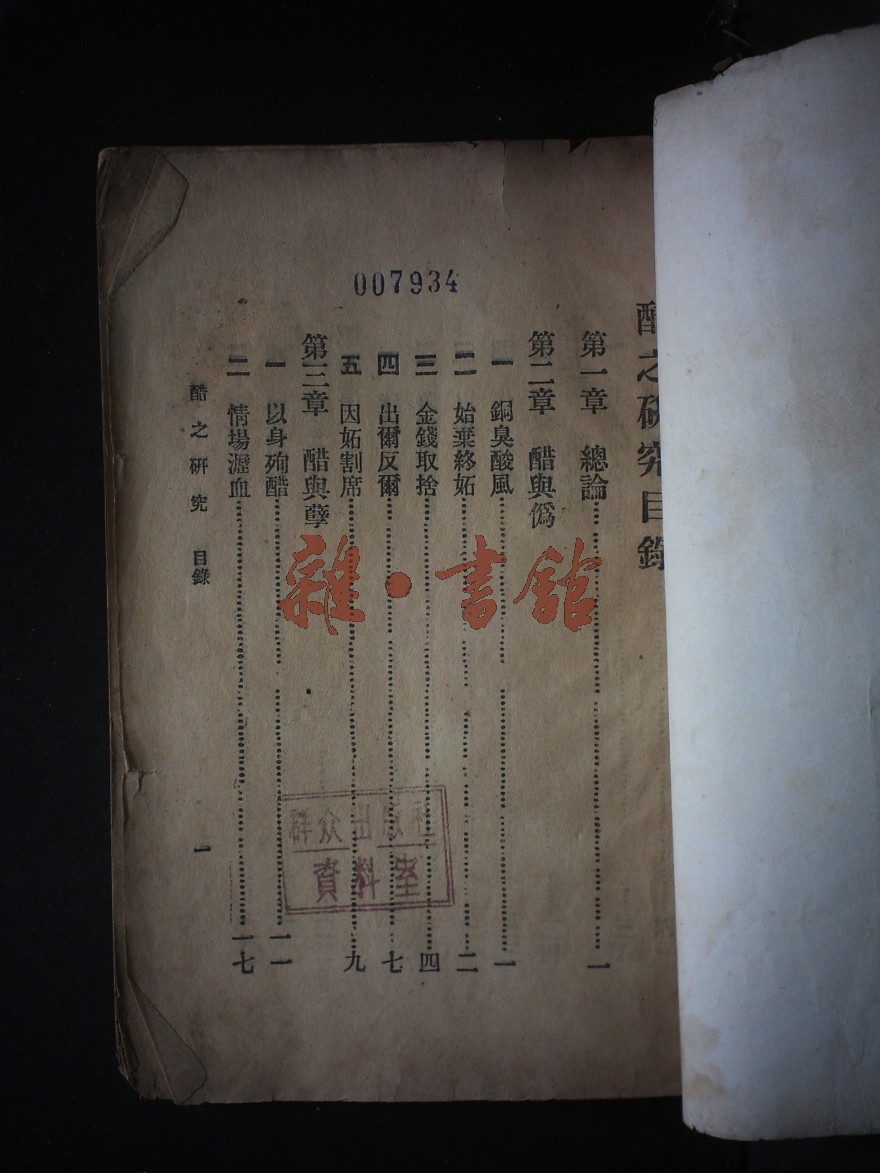 007934
醋之研究目錄
第一章 總論……一
第二章 醋與僞
一 銅臭酸風……一
二 始棄終妬……二
三 金錢取捨……四
四 出爾反爾……七
五 因妬割席……九
第三章 醋與孽
一 以身殉醋……一一
二 情場瀝血……一七
醋之研究 目錄
一
雜·書館
群众出版社
資料室